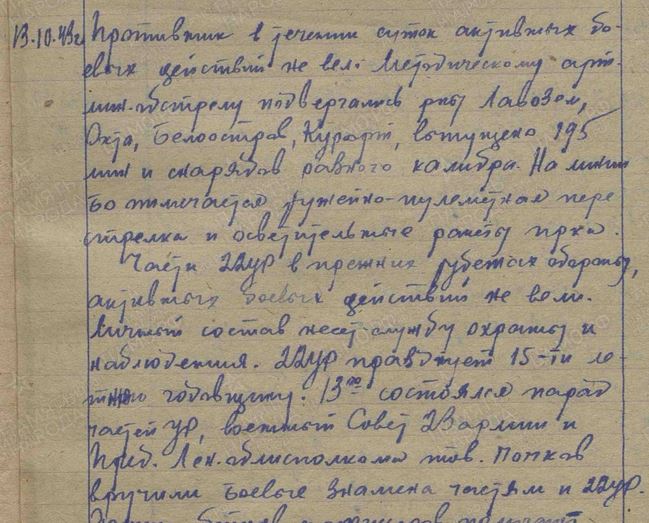 13.10.43г. Противник в течении суток активных бо-
евых действий не вел. Методическому арт-
мин.обстрелу подвергались рны Лавозем,
Охта, Белоостров, Курорт, выпущено 195
мин и снарядов разного калибра. На линии
БО отмечается ружейно-пулеметная пере
стрелка и осветительные ракеты прка.
Части 22УР в прежних рубежах обороны,
активных боевых действий не вели.
Личный состав несет службу охраны и
наблюдения. 22УР празднует 15-ти ле-
тнюю годовщину. 13го состоялся парад
частей УР, военный Совет 23 армии и
Пред. Лен.облисполкома тов. Попков
вручили Боевые Знамена частям и 22УР.